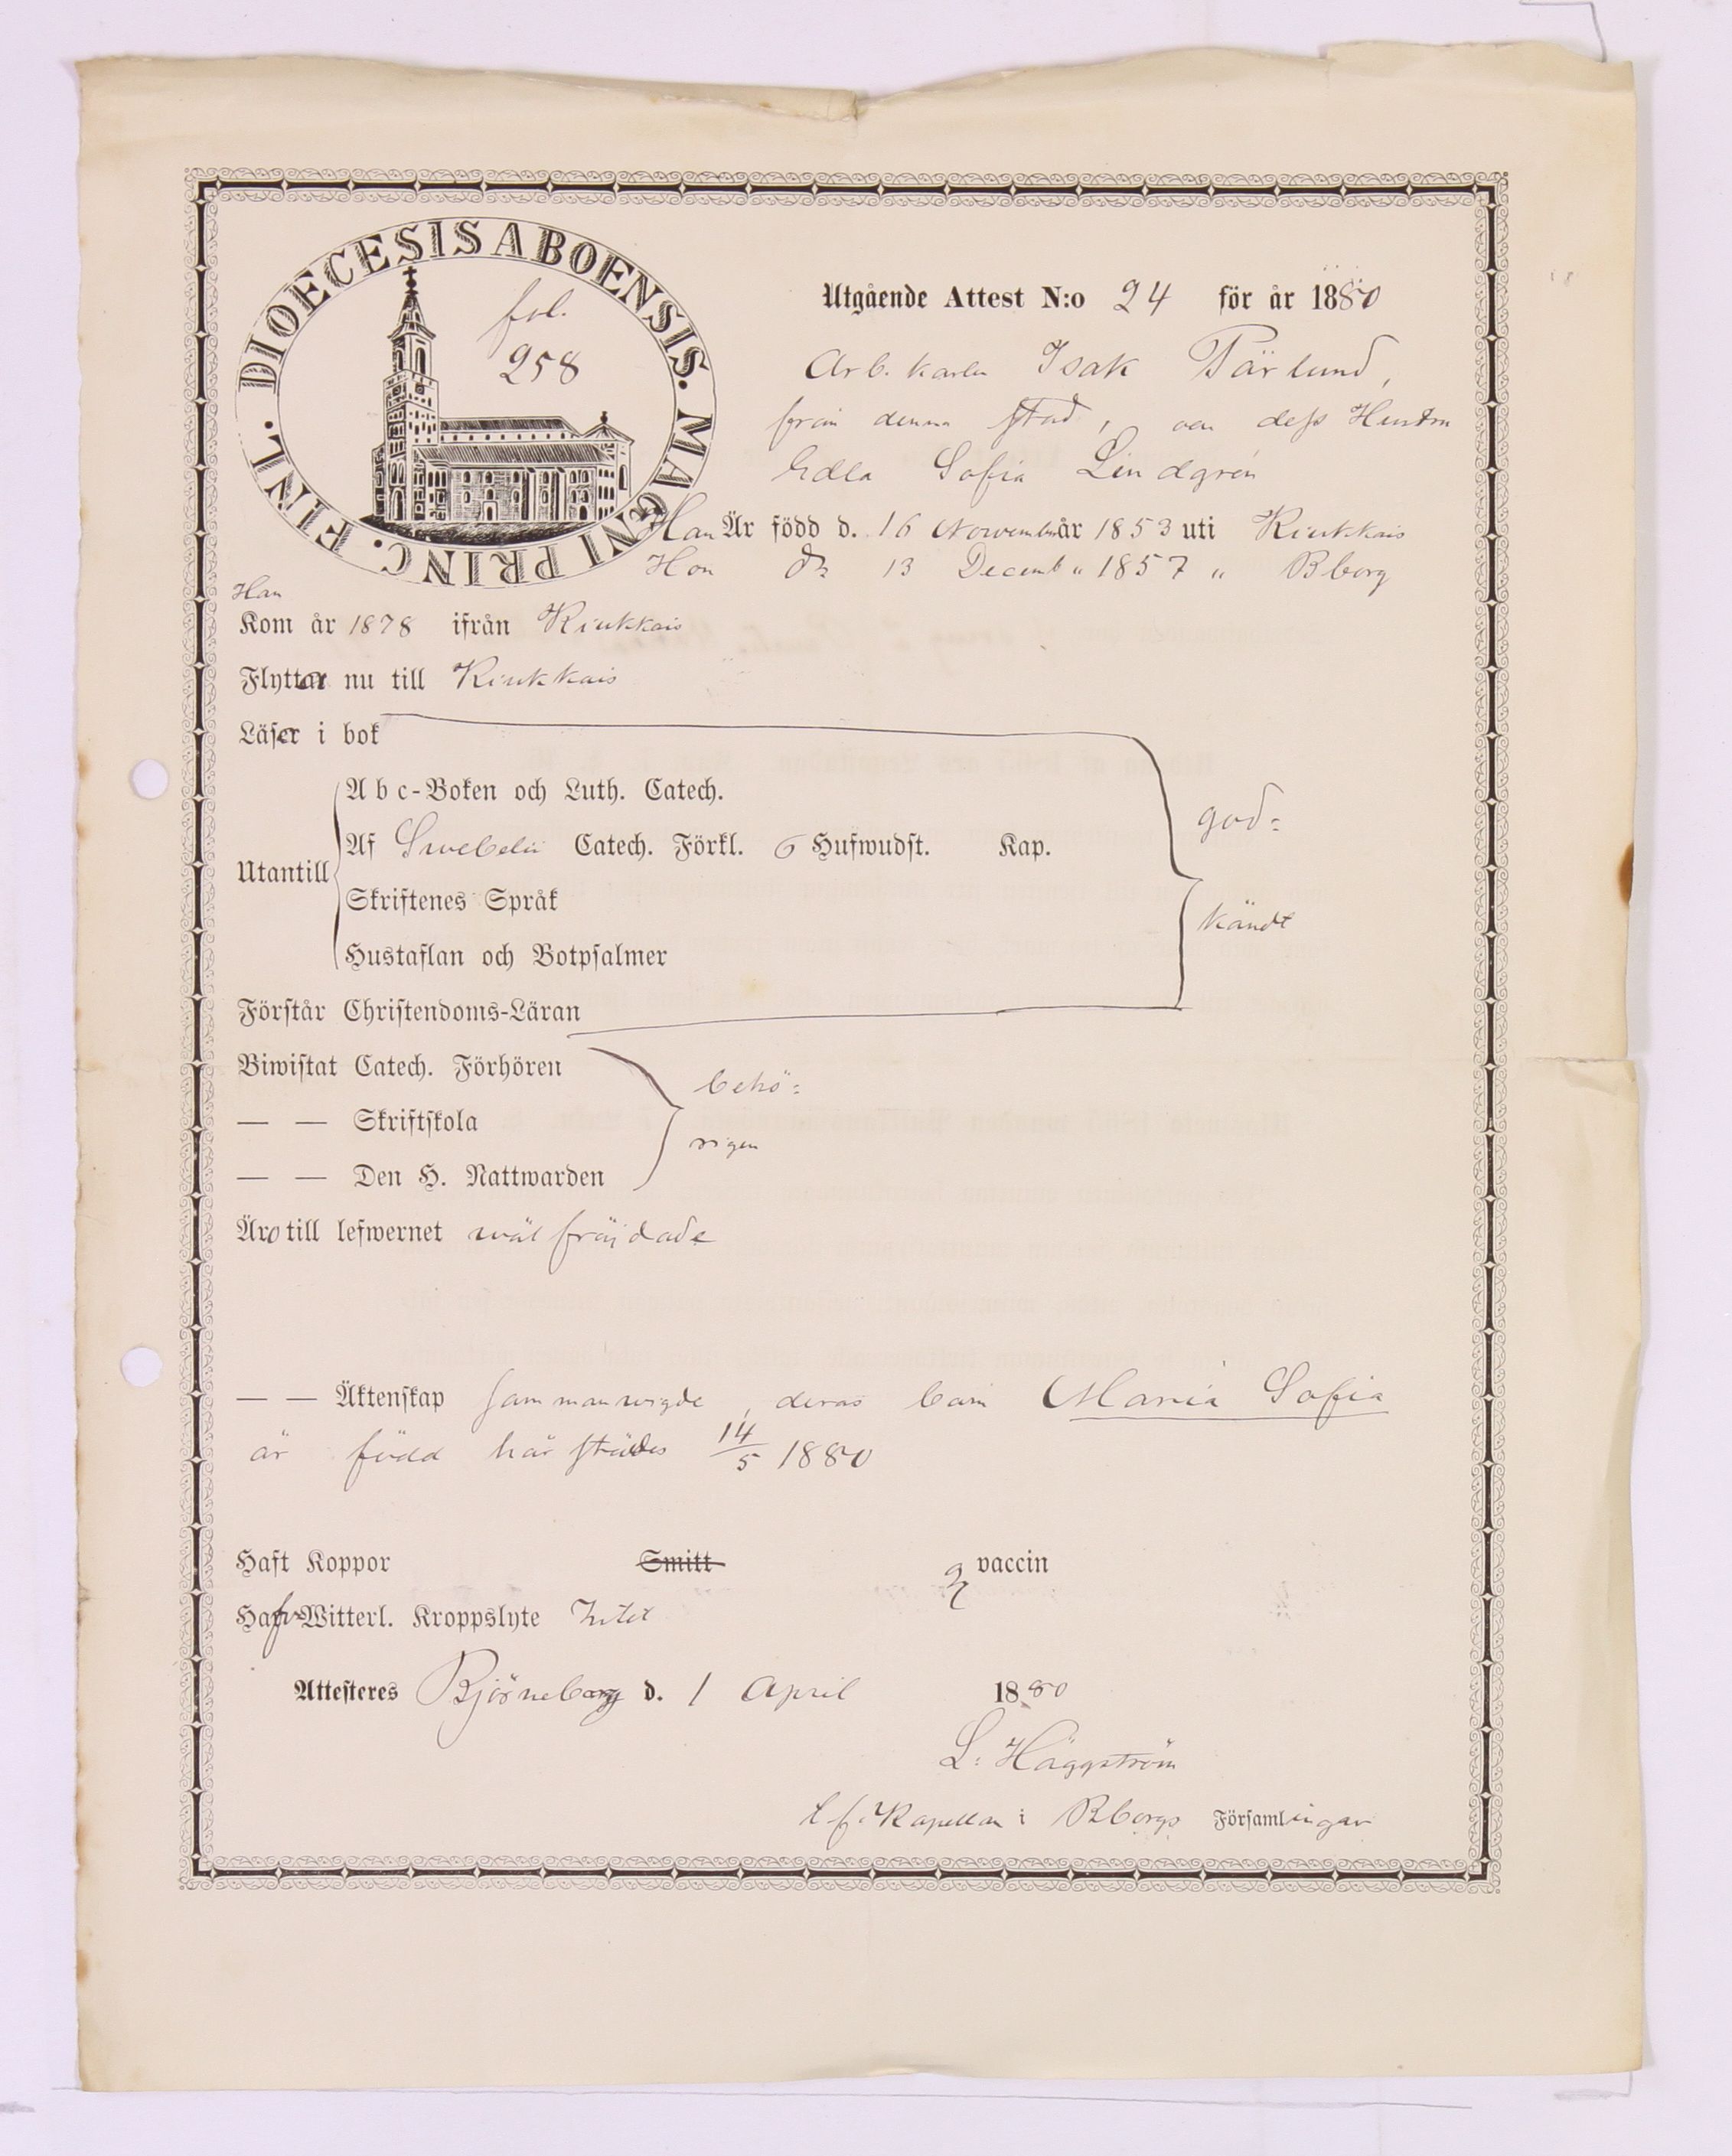 DIOECESIS ABOENSIS. MAGNI PRINC. FINL.
fol.
258
Utgående Attest N:o 24 för år 1880
Arb. karlen Isak Pärlund,
från denna stad, och dess Hustru
Edla Sofia Lindgrén
Han Är född d. 16 November år 1853 uti Kiukkais
Hon do 13 Decemb " 1857 " Bborg
Han
Kom år 1878 ifrån Kiukkais
Flyttar nu till Kiukkais
Läser i bok
Utantill
A b c-Boken och Luth. Catech.
Af Swebelii Catech. Förkl. 6 Hufwudst. Kap.
Skriftenes Språk
Hustaflan och Botpsalmer
god=
kändt
Förstår Christendoms-Läran
Biwistat Catech. Förhören
— — Skriftskola
— — Den H. Nattwarden
behö=
rigen
Äro till lefwernet wäl fräjdade
— — Äktenskap sammanwigde, deras barn Maria Sofia
är född härstädes 14/5 1880
Haft Koppor Smitt vaccin
Hafva Witterl. Kroppslyte Intet
Attesteres Björneborg d. 1 April 1880
L: Häggström
t. f. Kapellan i Bborgs Församlingar